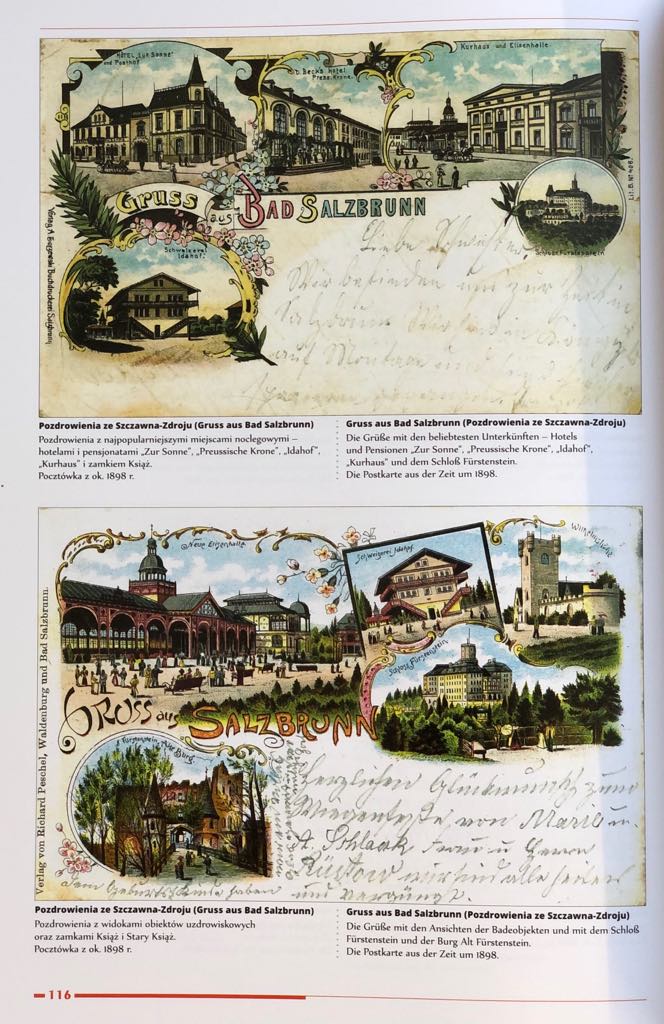 HOTEL "ZUR SONNE"
und Posthof
Becks Hotel
Preus. Krone.
Kurhaus und Elisenhalle
Gruss aus Bad Salzbrunn
Schloss Fürstenstein
Schweizerei
Idahof.
Liebe
Wir befinden uns zur Zeit in
Pozdrowienia ze Szczawna-Zdroju (Gruss aus Bad Salzbrunn)
Pozdrowienia z najpopularniejszymi miejscami noclegowymi –
hotelami i pensjonatami „Zur Sonne", „Preussische Krone", „Idahof",
„Kurhaus" i zamkiem Książ.
Pocztówka z ok. 1898 r.
Gruss aus Bad Salzbrunn (Pozdrowienia ze Szczawna-Zdroju)
Die Grüße mit den beliebtesten Unterkünften – Hotels
und Pensionen „Zur Sonne", „Preussische Krone", „Idahof",
„Kurhaus" und dem Schloß Fürstenstein.
Die Postkarte aus der Zeit um 1898.
Neue Elisenhalle
Schweizerei Idahof
Wilhelmshöhe
Schloss Fürstenstein
Gruss aus Salzbrunn
Fürstenstein Alte Burg.
Verlag von Richard Peschel, Waldenburg und Bad Salzbrunn.
Herzlichen Glückwunsch zum
Wiegenfeste von Marie u.
A. Schlaak Frau u Herrn
Rüstow wir sind alle heiter
und vergnügt.
Pozdrowienia ze Szczawna-Zdroju (Gruss aus Bad Salzbrunn)
Pozdrowienia z widokami obiektów uzdrowiskowych
oraz zamkami Książ i Stary Książ.
Pocztówka z ok. 1898 r.
Gruss aus Bad Salzbrunn (Pozdrowienia ze Szczawna-Zdroju)
Die Grüße mit den Ansichten der Badeobjekten und mit dem Schloß
Fürstenstein und der Burg Alt Fürstenstein.
Die Postkarte aus der Zeit um 1898.
116